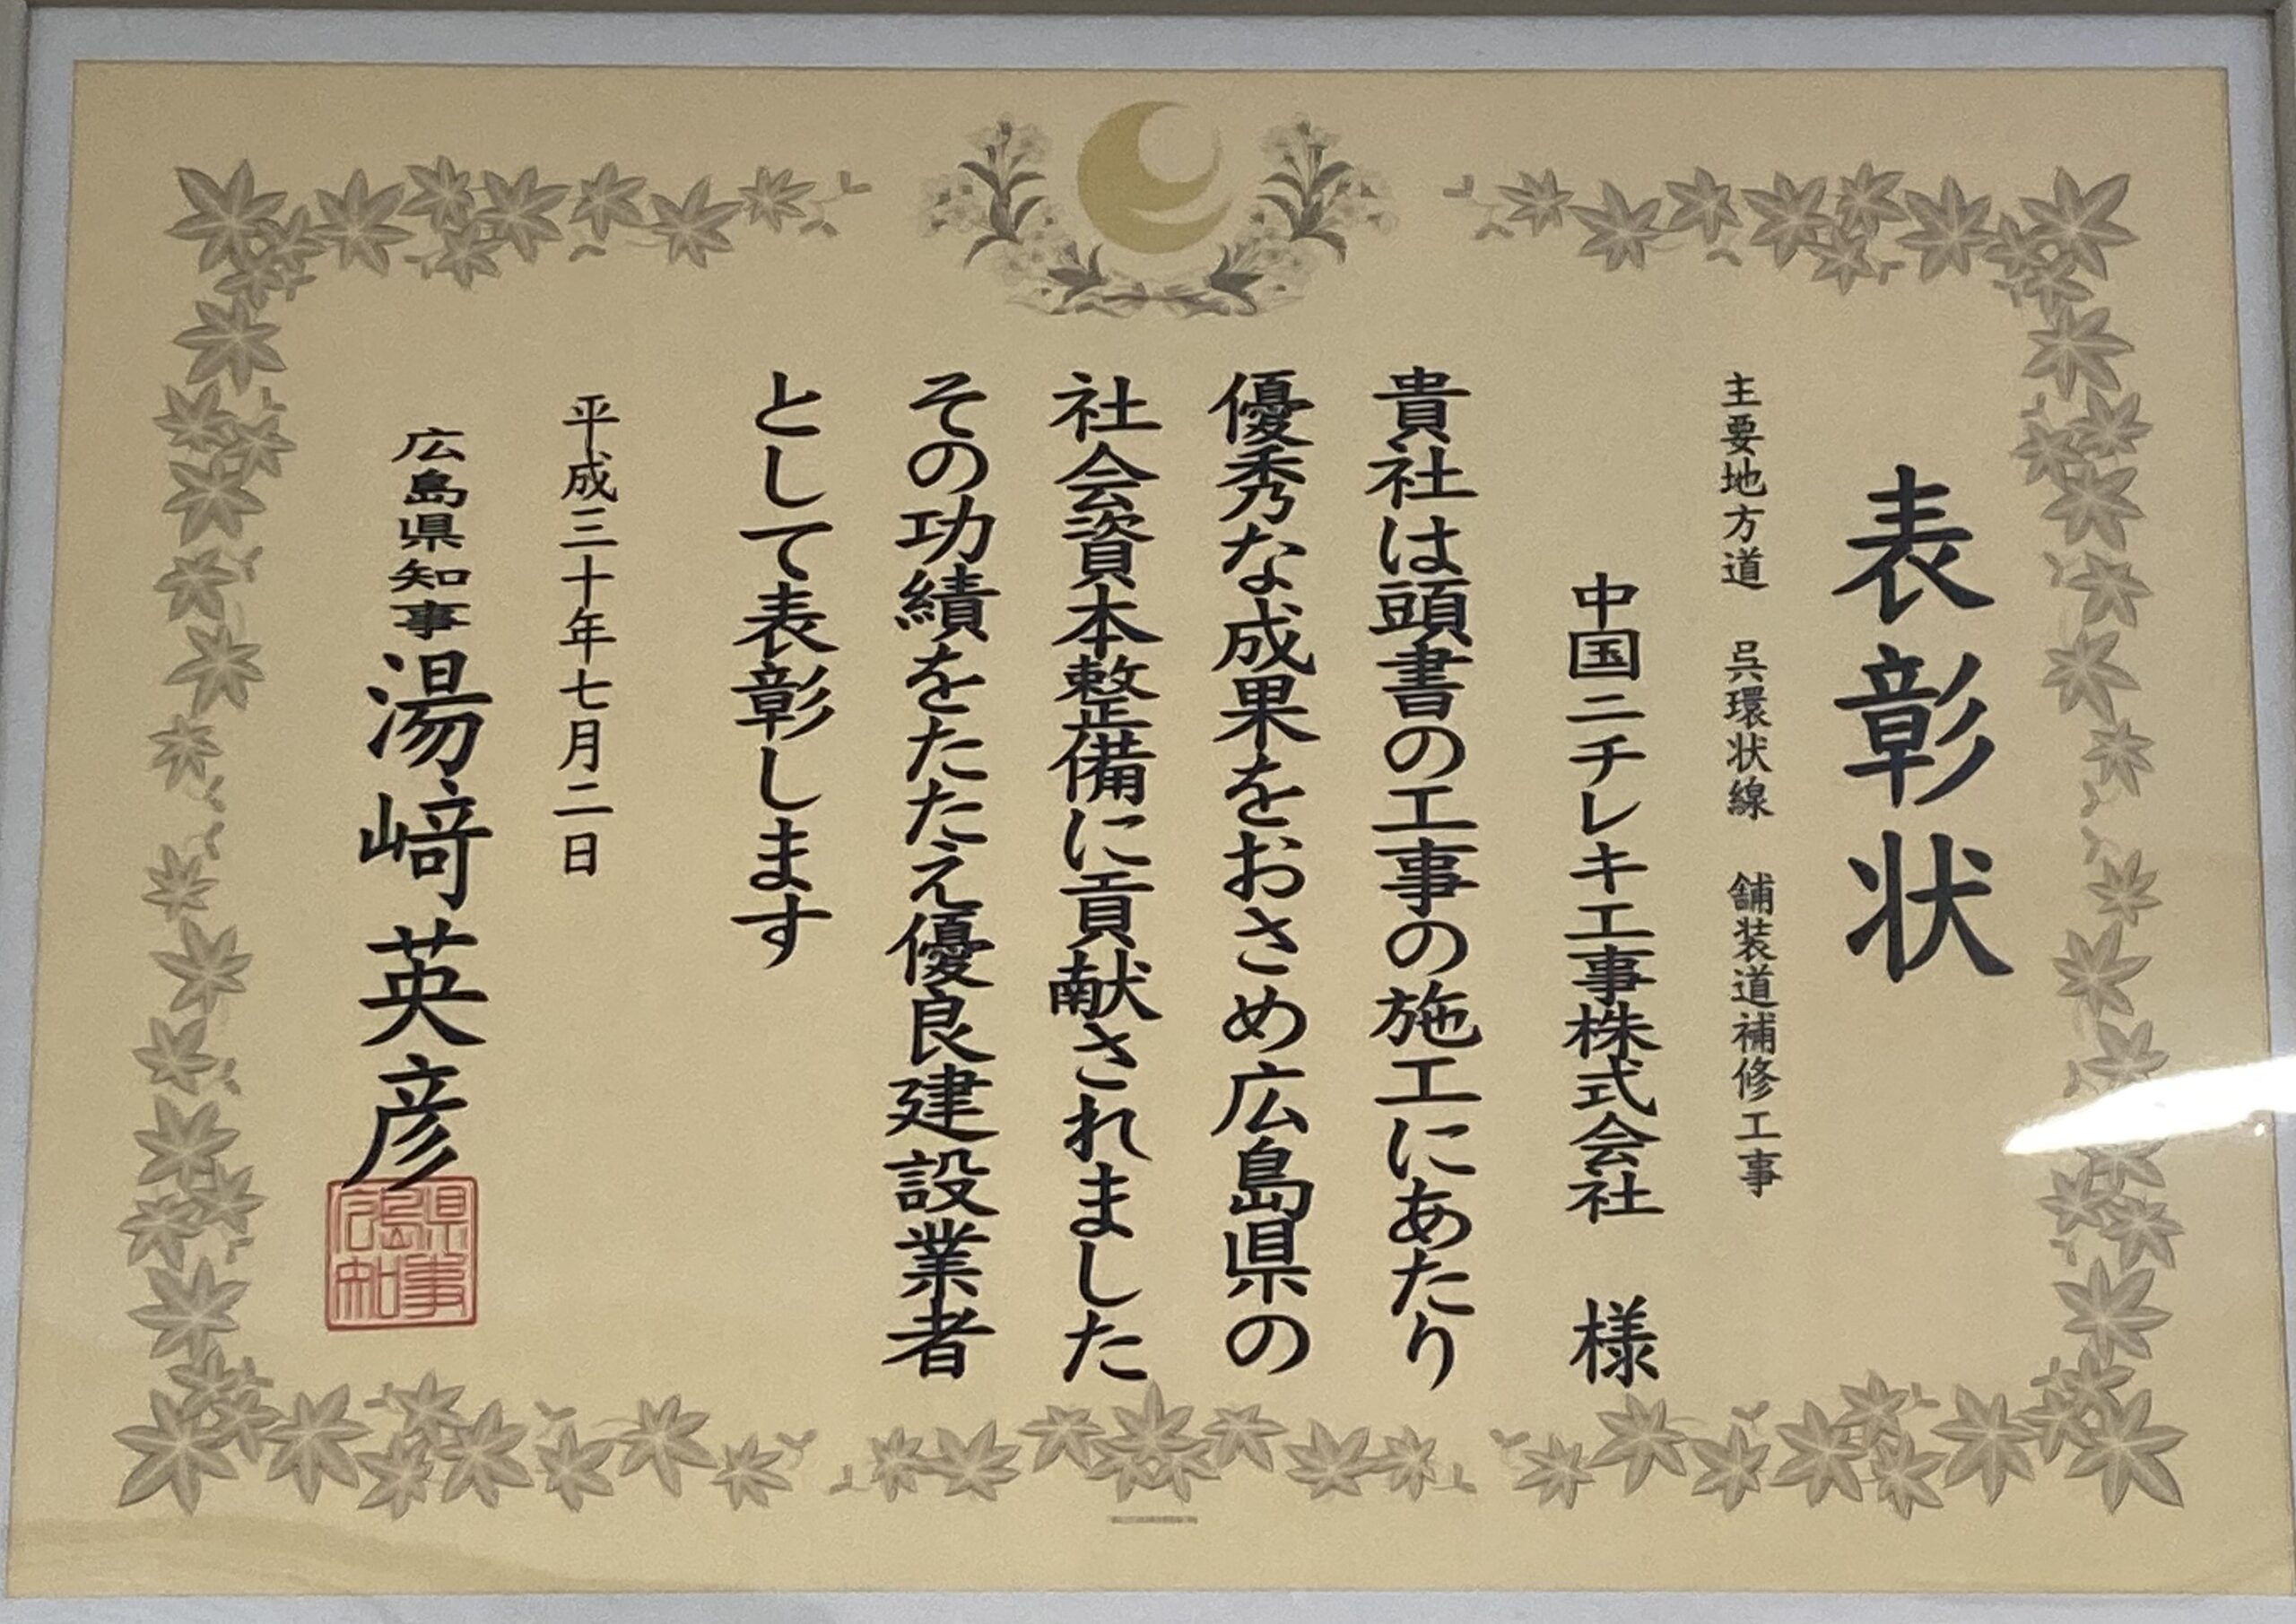 表彰状
主要地方道　呉環状線　舗装道補修工事
中国ニチレキ工事株式会社　様
貴社は頭書の工事の施工にあたり
優秀な成果をおさめ広島県の
社会資本整備に貢献されました
その功績をたたえ優良建設業者
として表彰します
平成三十年七月二日
広島県知事 湯﨑英彦
広島県知事